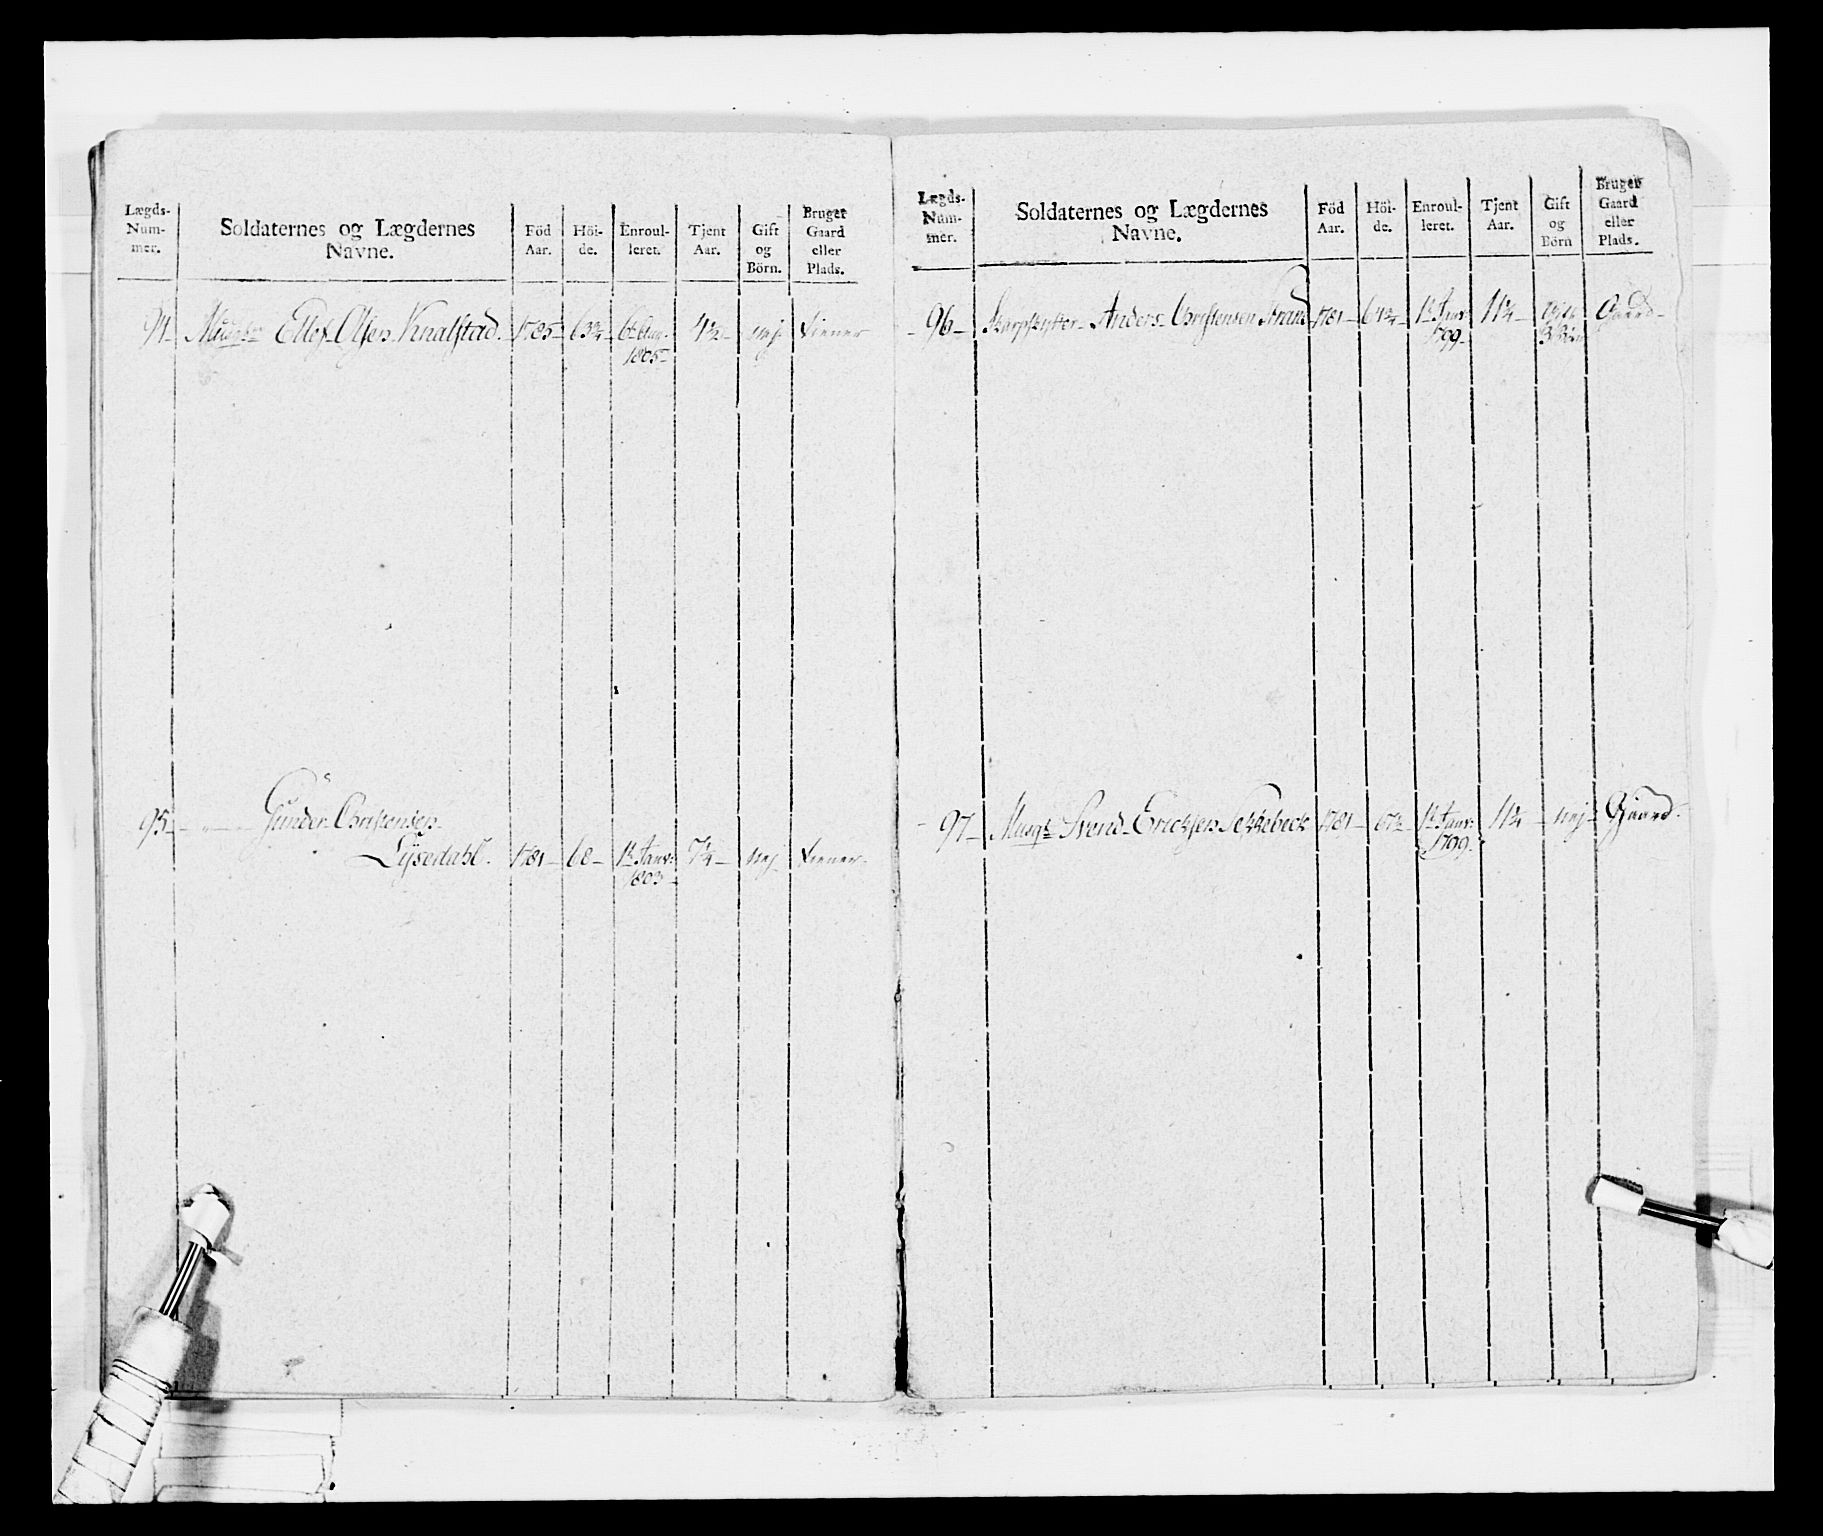 Lægds-Num-mer. Soldaternes og Lægdernes Navne. Föd Aar. Höi-de. Enroul-leret. Tjent Aar. Gift og Börn. Bruger Gaard eller Plads.
94 Ellef Olsen Knalstad. 1785 63¾ 1805 4½ nej tiener
95 Gunder Christensen
Lÿsedahl. 1781 68 1te Janv: 7¼ nej tiener
1803
Lægds-Num-mer. Soldaternes og Lægdernes Navne. Föd Aar. Höi-de. Enroul-leret. Tjent Aar. Gift og Börn Bruger Gaard eller Plads.
96 Skarpskytter Anders Christensen Strand 1781 64¾ 1te Janv: 11¼ Gaard
1799
97 Musqt Svend Ericksen Sekkebeck 1781 67½ 1te Janv: 11¼ nej Gaard
1799